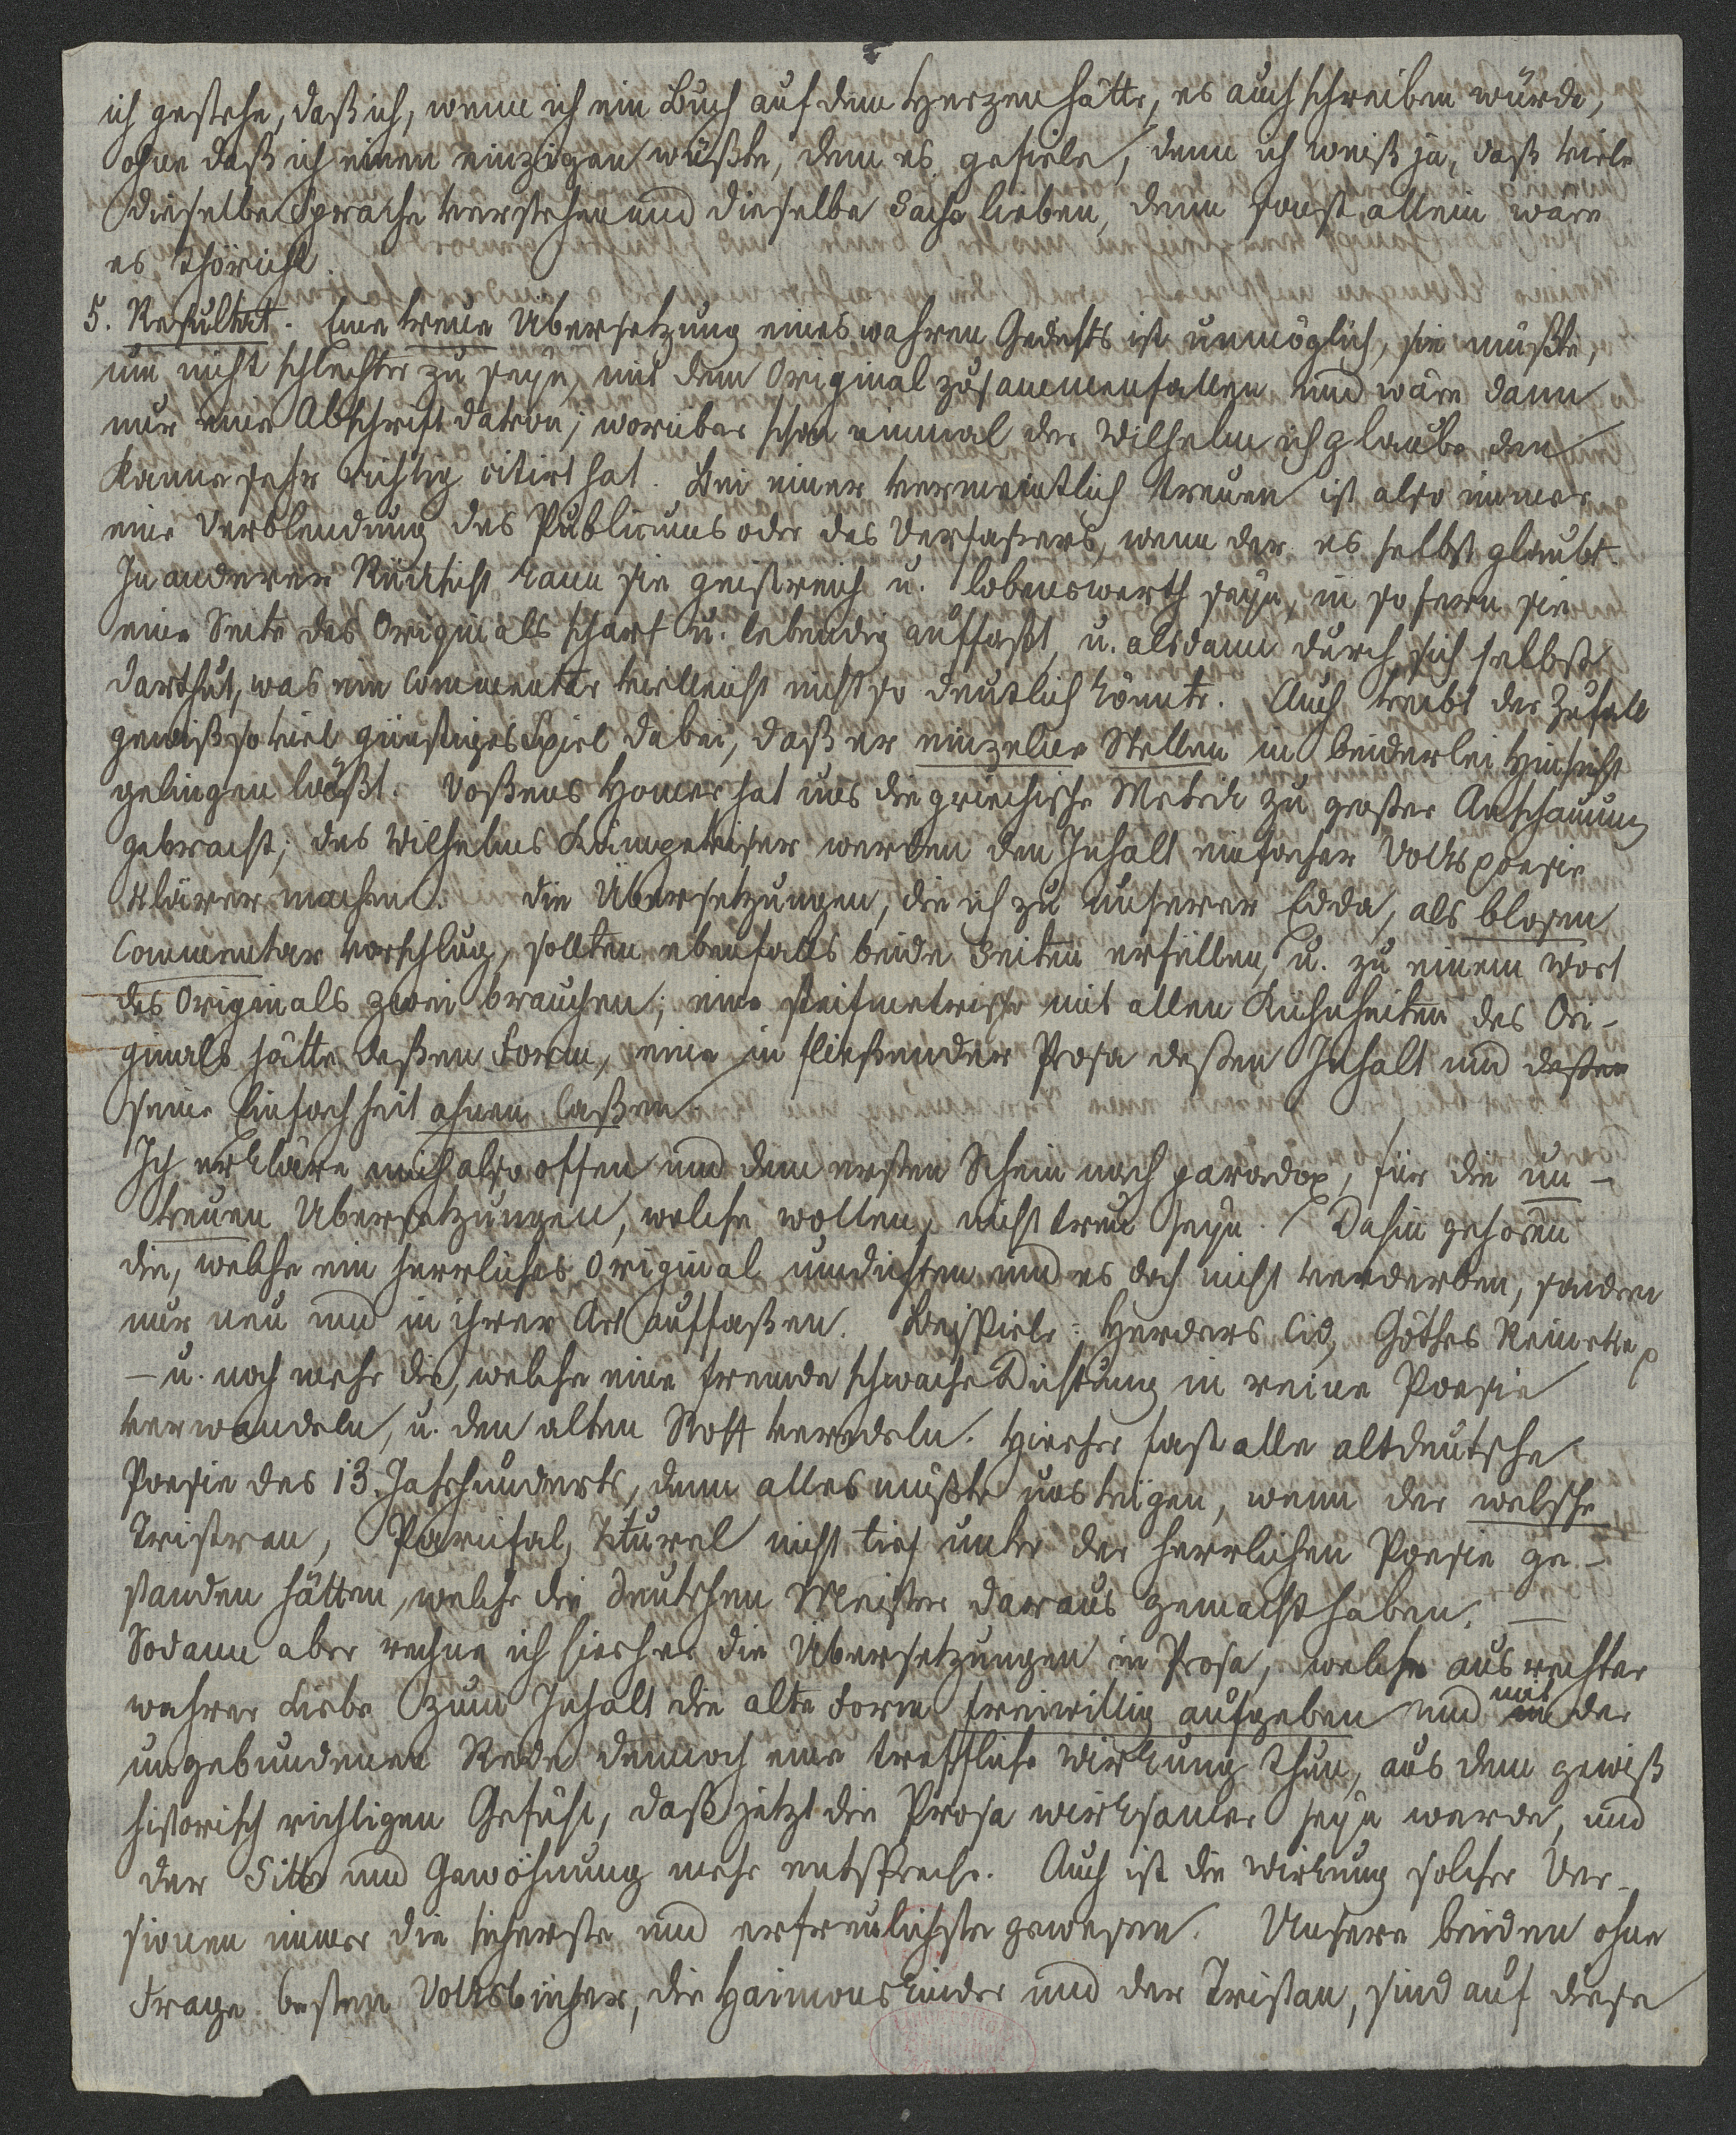 ich gestehe, daß ich, wenn ich ein Buch auf dem Herzen hätte, es auch schreiben würde,
ohne daß ich einen einzigen wüßte, dem es gefiele, denn ich weiß ja, daß viele
dieselbe Sprache verstehen und dieselbe Sache lieben, denn sonst allein wäre
es thöricht.
5. Resultat. Eine treue Übersetzung eines wahren Gedichts ist unmöglich, sie müßte,
um nicht schlechter zu seyn, mit dem Original zusammenfallen und wäre dann
nur eine Abschrift davon; worüber schon einmal der Wilhelm ich glaube den
Kanne sehr richtig citirt hat. Bei einer vermeintlich treuen ist also immer
eine Verblendung des Publicums oder des Verfaßers, wenn der es selbst glaubt.
In anderer Rücksicht kann sie geistreich u. lobenswerth seyn, in so fern sie
eine Seite des Originals scharf u. lebendig auffaßt, u. alsdann durch sich selbst
darthut, was ein Commentar vielleicht nicht so deutlich könnte. Auch treibt der Zufall
gewiß so viel günstiges Spiel dabei, daß er einzelne Stellen in beiderlei Hinsicht
gelingen läßt. Voßens Homer hat uns die griechische Metrik zu großer Anschauung
gebracht; des Wilhelms Kämpeviser werden den Inhalt einfacher Volkspoesie
klärer machen. die Übersetzungen, die ich zu unserer Edda, als blosen
Commentar vorschlug, sollten ebenfalls beide Seiten erfüllen, u. zu einem Wort
des Originals zwei brauchen; eine steifmetrische mit allen Kühnheiten des Ori-
ginals hätte deßen Form, eine in fließender Prosa deßen Inhalt und deßen
seine Einfachheit ahnen laßen.
Ich erkläre mich also offen und dem ersten Schein nach paradox, für die un-
treuen Übersetzungen, welche wollen, nicht treu seyn. Dahin gehören
die, welche ein herrliches Original umdichten und es doch nicht verderben, sondern
nur neu und in ihrer Art auffaßen. Beispiele: Herders Cid, Göthes Reineke
– u. noch mehr die, welche eine fremde schwache Dichtung in reine Poesie
verwandeln, u. den alten Stoff veredeln. Hierher fast alle altdeutsche
Poesie des 13. Jahrhunderts, denn alles müßte uns trügen, wenn der welsche
Tristran, Parcifal, Titurel nicht tief unter der herrlichen Poesie ge-
standen hätten, welche die deutschen Meister daraus gemacht haben. –
Sodann aber rechne ich hierher die Übersetzungen in Prosa, welche aus rechter
wahrer Liebe zum Inhalt die alte Form freiwillig aufgeben und mit der
ungebundenen Rede dennoch eine treffliche Wirkung thun, aus dem gewiß
historisch richtigen Gefühl, daß jetzt die Prosa wirksamer seyn werde, und
der Sitte und Gewöhnung mehr entspreche. Auch ist die Wirkung solcher Ver-
sionen immer die sicherste und erfreulichste gewesen. Unsere beiden ohne
Frage besten Volksbücher, die Haimonskinder und der Tristan, sind auf diese